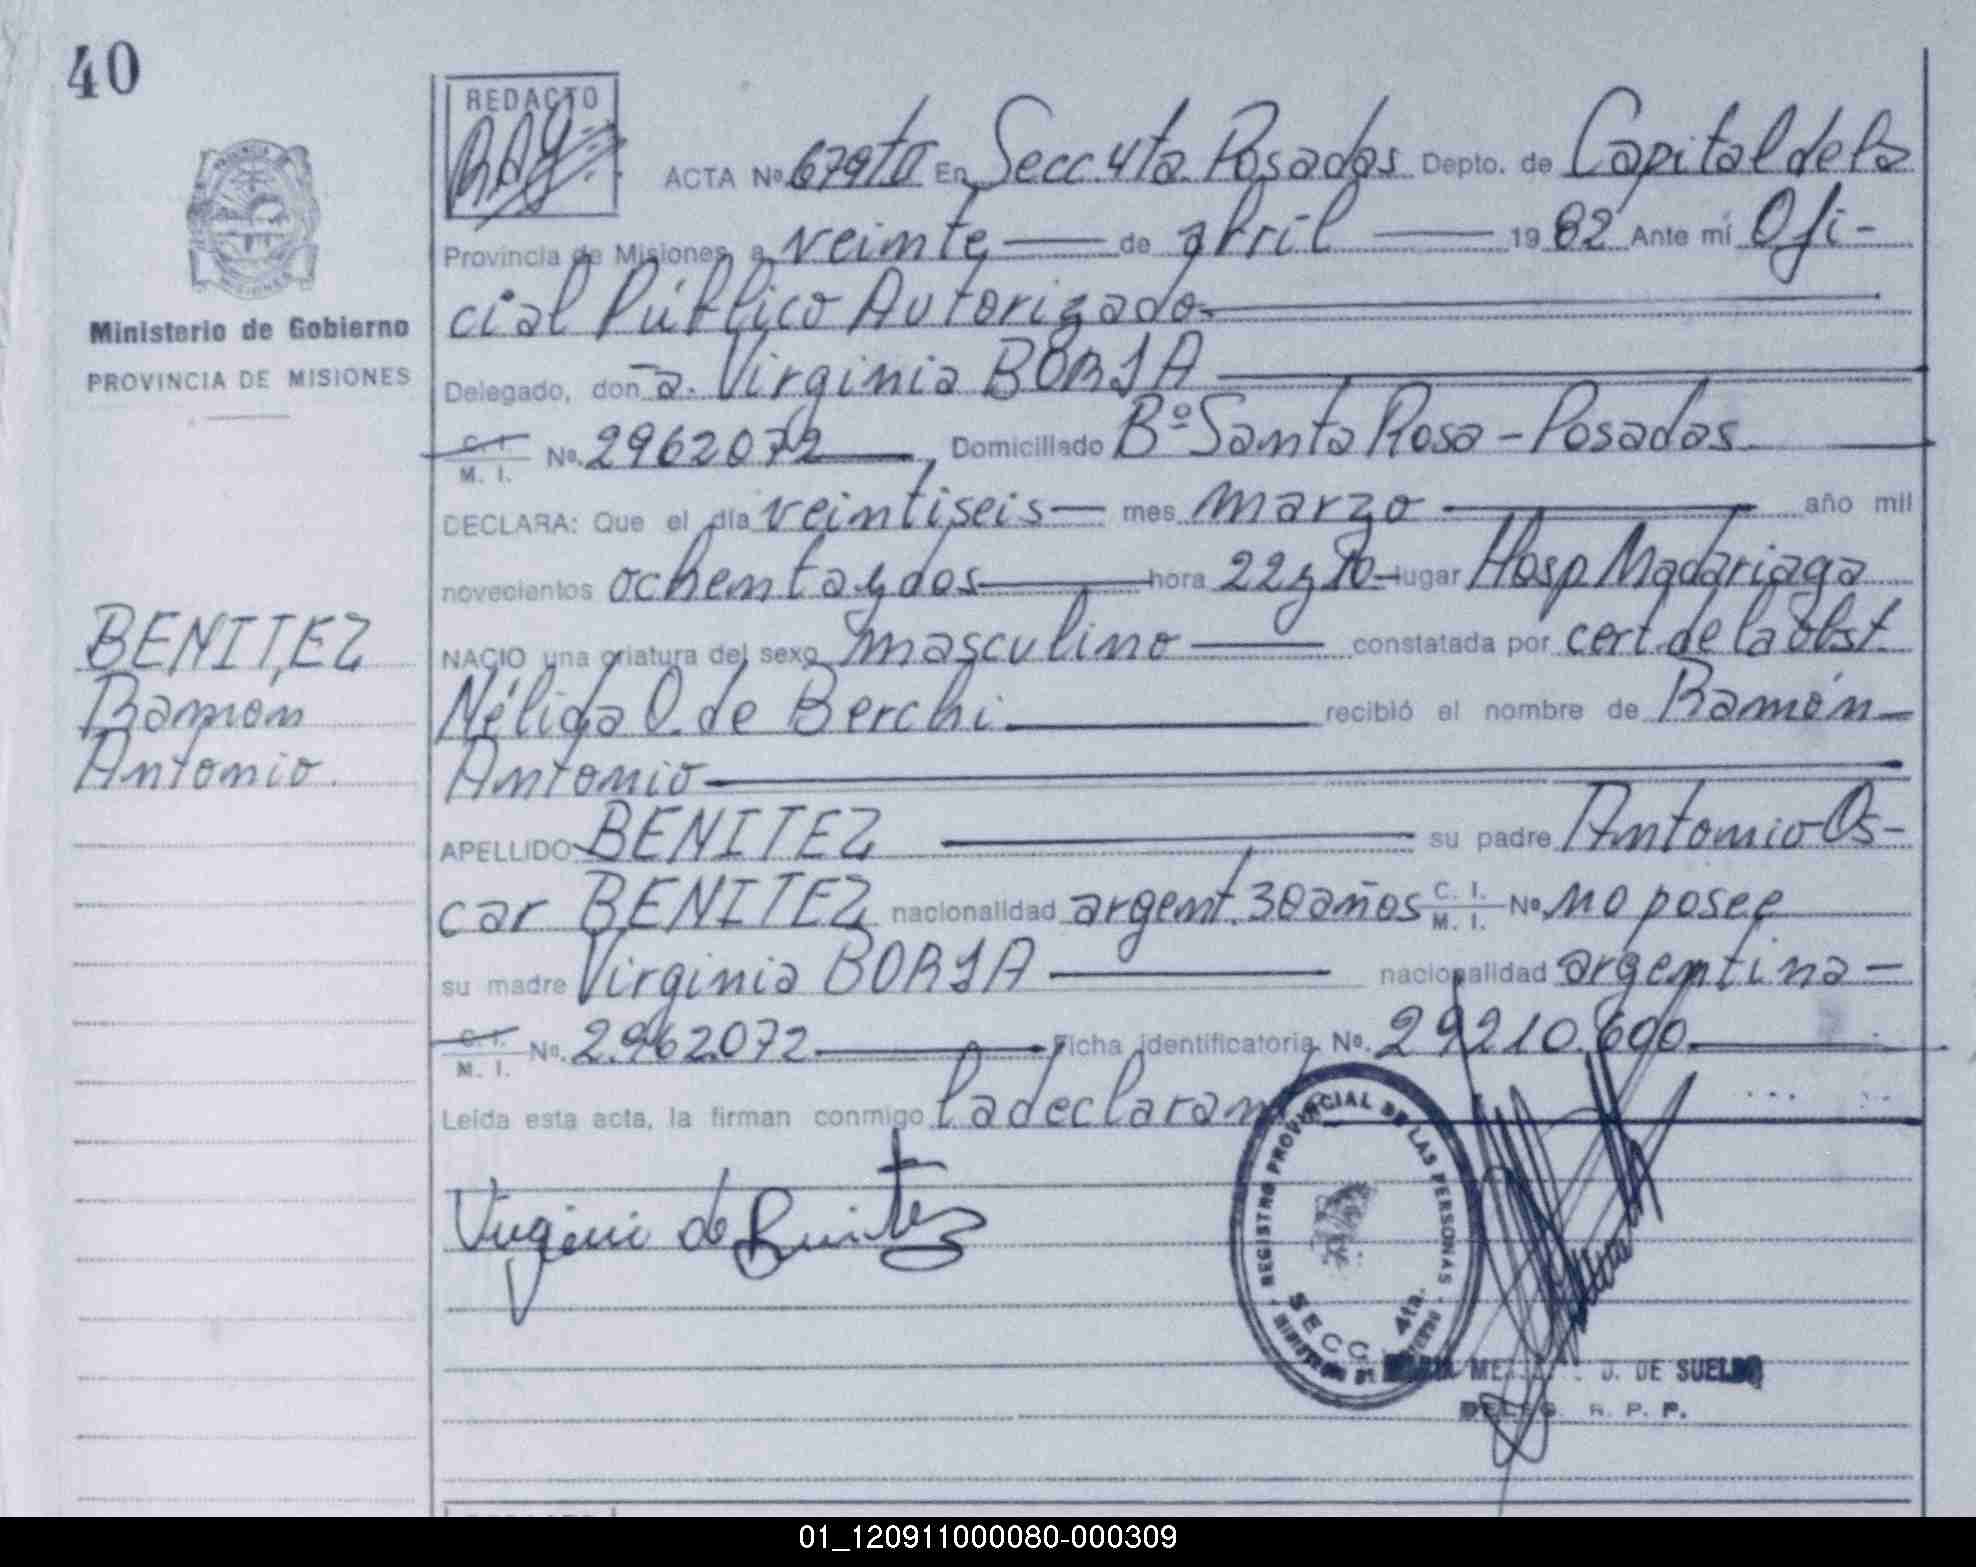 40
REDACTO
ACTA No. 679 to En Secc. 4ta. Posadas Depto. de Capital de la
Provincia de Misiones, a veinte de abril 1982 Ante mí Ofi-
cial Público Autorizado
Ministerio de Gobierno
PROVINCIA DE MISIONES
Delegado, don a. Virginia BORJA
C. I.
M. I. No. 2962072, Domiciliado Bº Santa Rosa - Posadas
DECLARA: Que el día veintiseis mes marzo año mil
novecientos ochenta y dos hora 22 y 10 lugar Hosp Madariaga
NACIO una criatura del sexo masculino constatada por cert. de la Obst.
Nélida O. de Berchi recibió el nombre de Ramón
Antonio
BENITEZ
Ramón
Antonio.
APELLIDO BENITEZ su padre Antonio Os-
car BENITEZ nacionalidad argent. 30 años C. I. M. I. No. no posee
su madre Virginia BORJA nacionalidad argentina
C. I.
M. I. No. 2.962.072 Ficha identificatoria No. 29.210.600
Leída esta acta, la firman conmigo la declarant
Virginia de Benitez
REGISTRO PROVINCIAL DE LAS PERSONAS
SECC. 4ta.
D. DE SUELDO
DELEG. R. P. P.
01_120911000080-000309